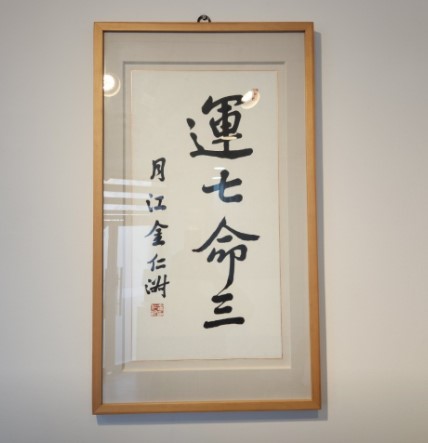 運七命三
月江金仁